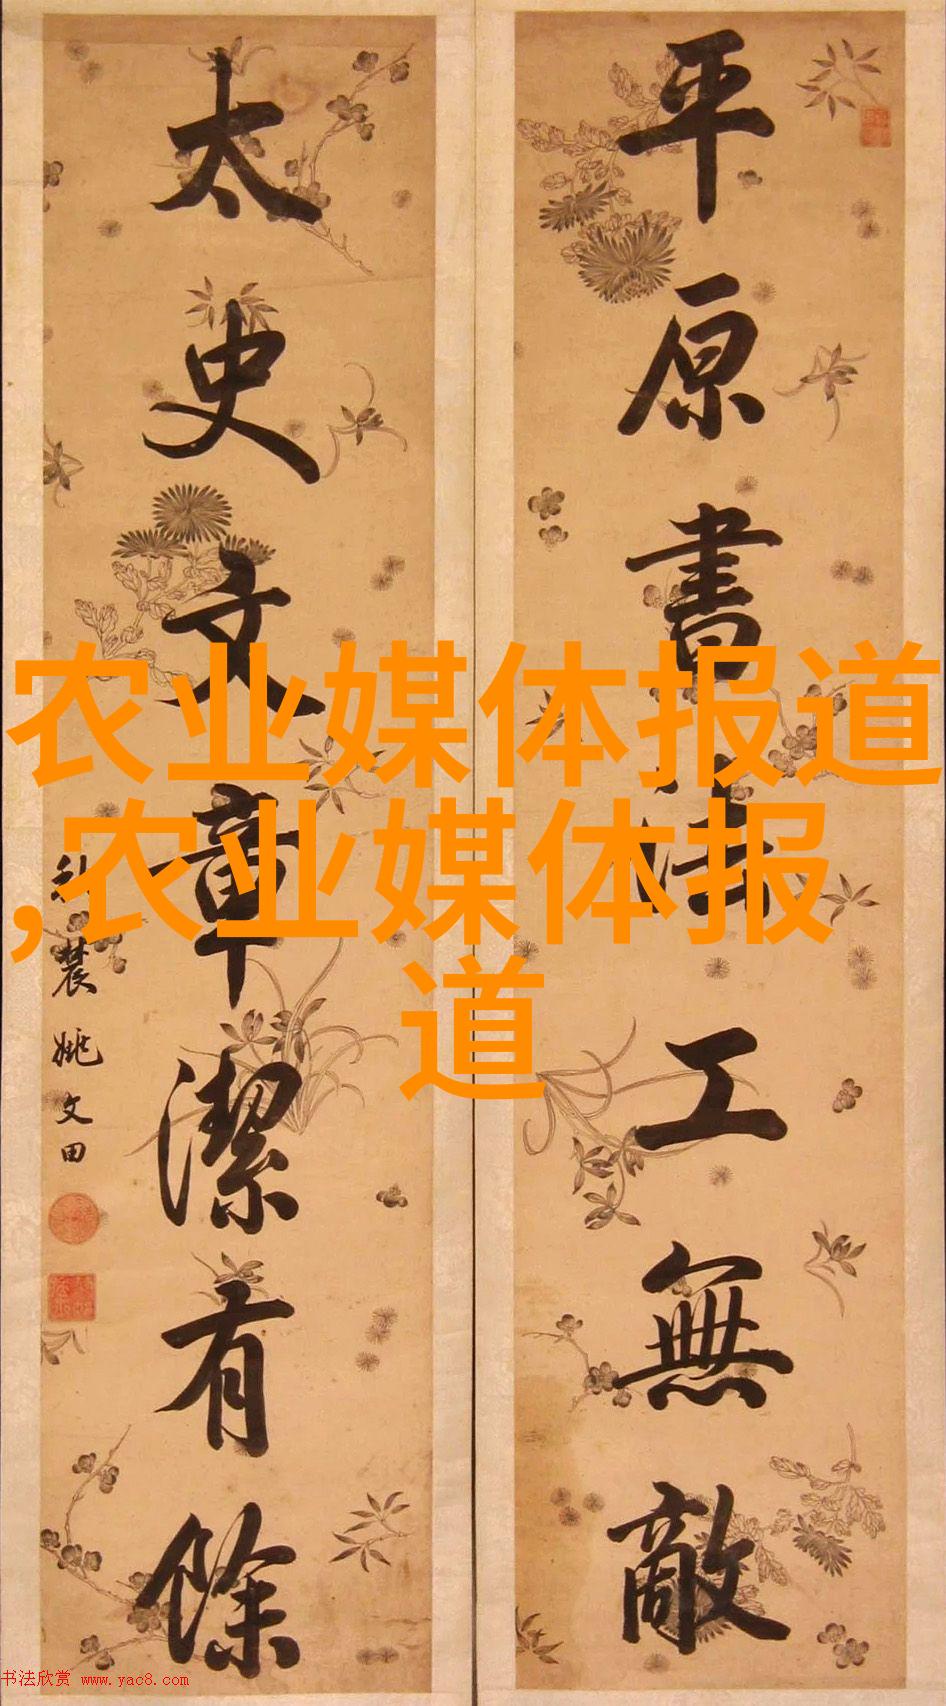 平原書法工無敵
太史文章潔有餘
秋農姚文田
农业媒体报道
,农业媒体报
道
书法欣赏 www.yac8.com